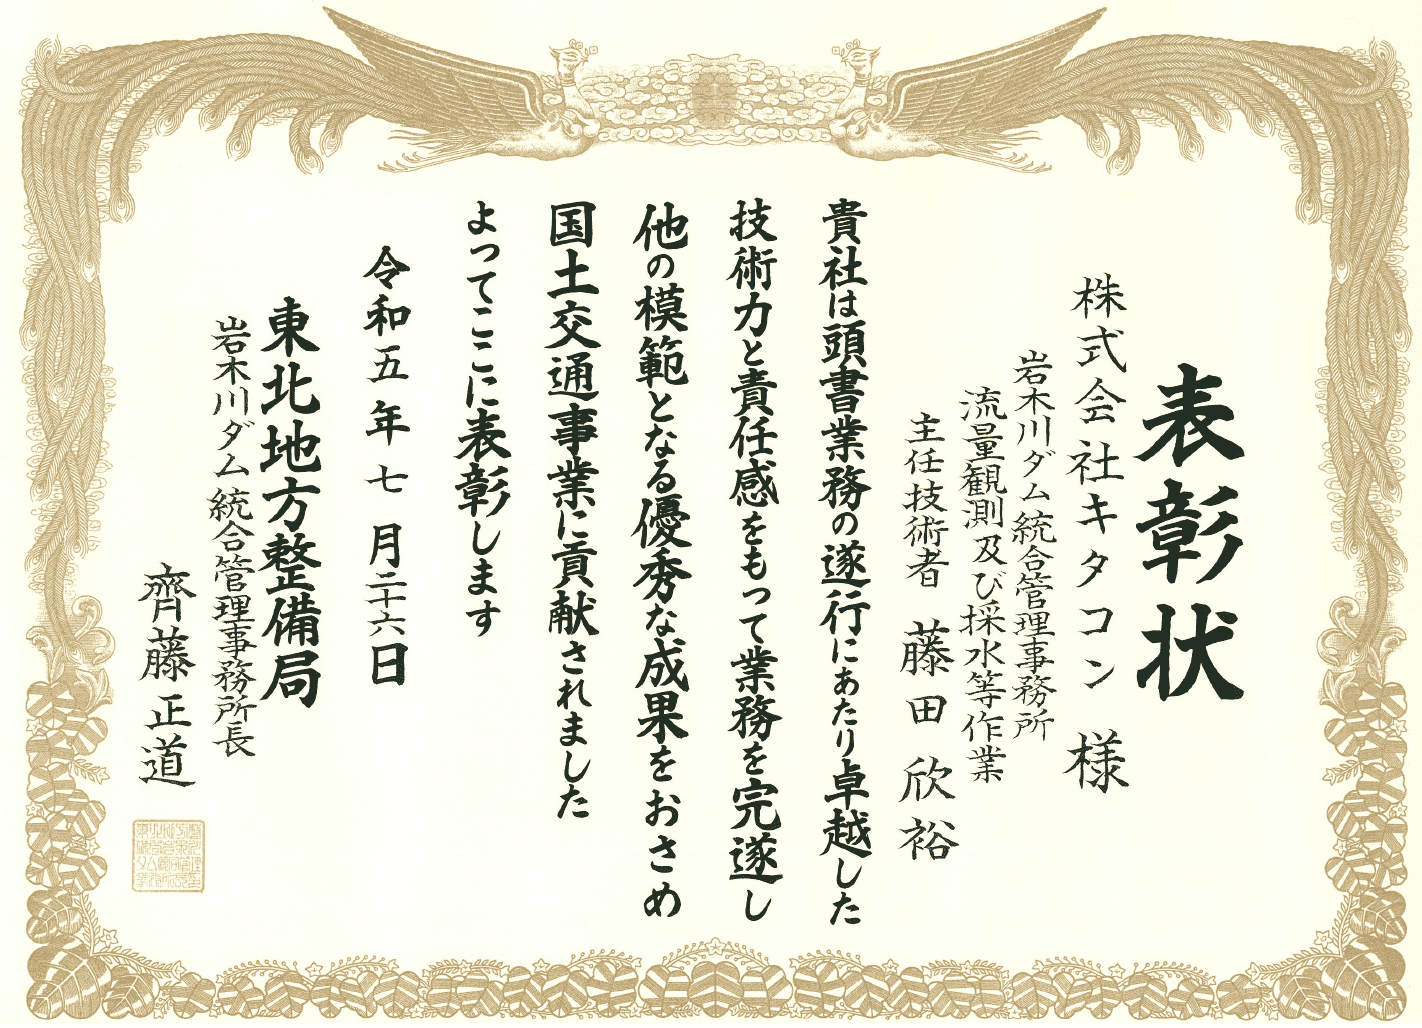 表彰状
株式会社キタコン 様
岩木川ダム統合管理事務所
流量観測及び採水等作業
主任技術者 藤田 欣裕
貴社は頭書業務の遂行にあたり卓越した
技術力と責任感をもって業務を完遂し
他の模範となる優秀な成果をおさめ
国土交通事業に貢献されました
よってここに表彰します
令和五年七月二十六日
東北地方整備局
岩木川ダム統合管理事務所長
齊藤正道